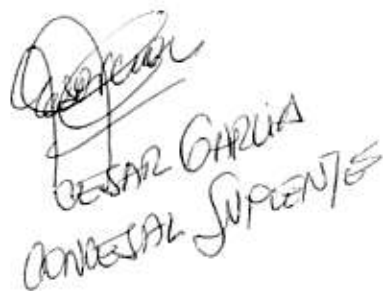 CESAR GARCIA
CONCEJAL SUPLENTE